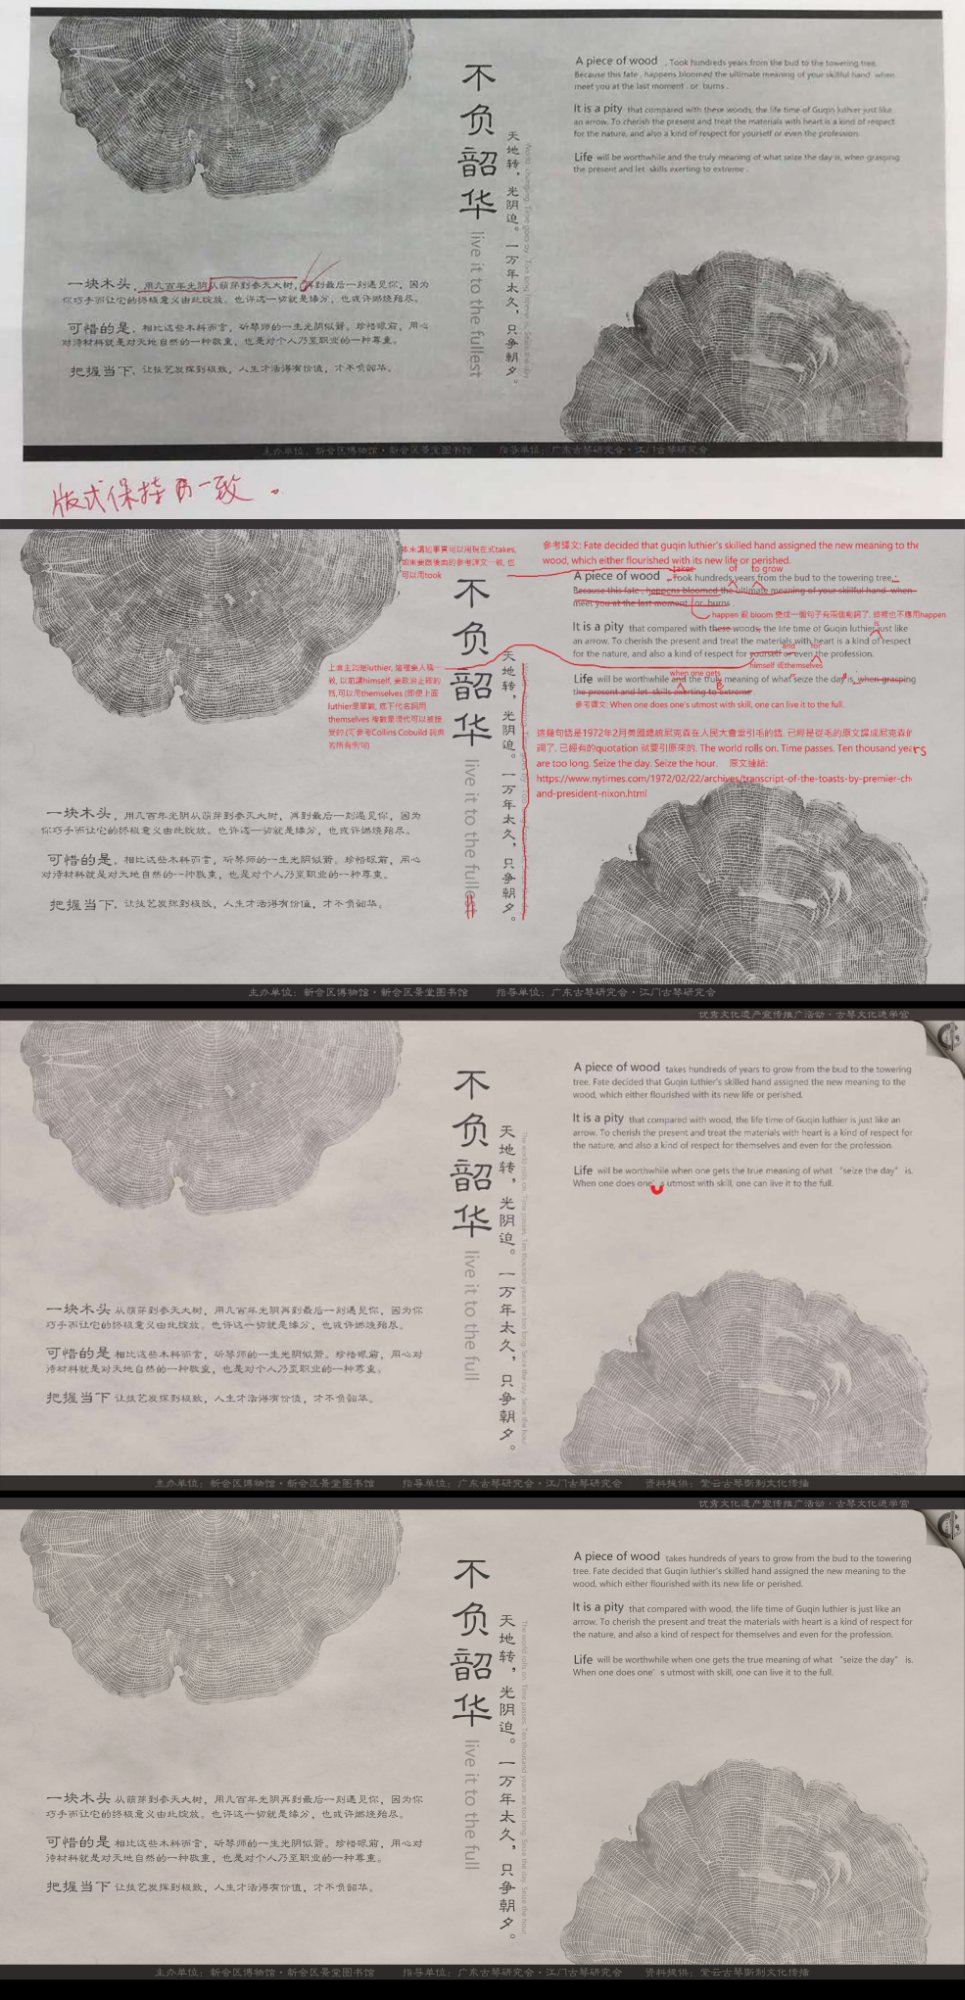 A piece of wood , Took hundreds years from the bud to the towering tree.
Because this fate , happens bloomed the ultimate meaning of your skillful hand when
meet you at the last moment , or burns .
It is a pity that compared with these woods, the life time of Guqin luthier just like
an arrow. To cherish the present and treat the materials with heart is a kind of respect
for the nature, and also a kind of respect for yourself or even the profession.
Life will be worthwhile and the truly meaning of what seize the day is, when grasping
the present and let skills exerting to extreme .
不负韶华
live it to the fullest
天地转，光阴迫。一万年太久，只争朝夕。
一块木头，用几百年光阴从萌芽到参天大树，再到最后一刻遇见你，因为
你巧手而让它的终极意义由此绽放。也许这一切就是缘分，也或许燃烧殆尽。
可惜的是，相比这些木料而言，斫琴师的一生光阴似箭。珍惜眼前，用心
对待材料就是对天地自然的一种敬重，也是对个人乃至职业的一种尊重。
把握当下，让技艺发挥到极致，人生才活得有价值，才不负韶华。
主办单位：新会区博物馆·新会区景堂图书馆 指导单位：广东古琴研究会·江门古琴研究会
版式保持一致。
本来講述事實可以用現在式takes,
如果要跟後面的參考譯文一致, 也
可以用took
參考譯文: Fate decided that guqin luthier's skilled hand assigned the new meaning to the
wood, which either flourished with its new life or perished.
takes of to grow
A piece of wood , Took hundreds years from the bud to the towering tree.
Because this fate , happens bloomed the ultimate meaning of your skillful hand when
meet you at the last moment , or burns .
happen 跟 bloom 變成一個句子有兩個動詞了, 這裡也不應用happen
It is a pity that compared with these woods, the life time of Guqin luthier just like
is
an arrow. To cherish the present and treat the materials with heart is a kind of respect
and for
for the nature, and also a kind of respect for yourself or even the profession.
himself 或themselves
上文主詞是luthier, 這裡要人稱一
致, 以前講himself, 要政治正確的
話,可以用themselves (即使上面
luthier是單數, 底下代名詞用
themselves 複數是現代可以被接
受的.(可參考Collins Cobuild 詞典
的所有例句)
when one gets
Life will be worthwhile and the truly meaning of what seize the day is, when grasping
the present and let skills exerting to extreme .
參考譯文: When one does one's utmost with skill, one can live it to the full.
這幾句話是1972年2月美國總統尼克森在人民大會堂引毛的話. 已經是從毛的原文譯成尼克森的
詞了. 已經有的quotation 就要引原來的. The world rolls on. Time passes. Ten thousand years
are too long. Seize the day. Seize the hour. 原文連結:
https://www.nytimes.com/1972/02/22/archives/transcript-of-the-toasts-by-premier-ch
and-president-nixon.html
不负韶华
live it to the fullest
天地转，光阴迫。一万年太久，只争朝夕。
一块木头，用几百年光阴从萌芽到参天大树，再到最后一刻遇见你，因为
你巧手而让它的终极意义由此绽放。也许这一切就是缘分，也或许燃烧殆尽。
可惜的是，相比这些木料而言，斫琴师的一生光阴似箭。珍惜眼前，用心
对待材料就是对天地自然的一种敬重，也是对个人乃至职业的一种尊重。
把握当下，让技艺发挥到极致，人生才活得有价值，才不负韶华。
主办单位：新会区博物馆·新会区景堂图书馆 指导单位：广东古琴研究会·江门古琴研究会
优秀文化遗产宣传推广活动·古琴文化进学宫
A piece of wood takes hundreds of years to grow from the bud to the towering
tree. Fate decided that Guqin luthier's skilled hand assigned the new meaning to the
wood, which either flourished with its new life or perished.
It is a pity that compared with wood, the life time of Guqin luthier is just like an
arrow. To cherish the present and treat the materials with heart is a kind of respect for
the nature, and also a kind of respect for themselves and even for the profession.
Life will be worthwhile when one gets the true meaning of what “seize the day” is.
When one does one's utmost with skill, one can live it to the full.
不负韶华
live it to the full
天地转，光阴迫。一万年太久，只争朝夕。
The world rolls on. Time passes. Ten thousand years are too long. Seize the day. Seize the hour.
一块木头 从萌芽到参天大树，用几百年光阴再到最后一刻遇见你，因为你
巧手而让它的终极意义由此绽放。也许这一切就是缘分，也或许燃烧殆尽。
可惜的是 相比这些木料而言，斫琴师的一生光阴似箭。珍惜眼前，用心对
待材料就是对天地自然的一种敬重，也是对个人乃至职业的一种尊重。
把握当下 让技艺发挥到极致，人生才活得有价值，才不负韶华。
主办单位：新会区博物馆·新会区景堂图书馆 指导单位：广东古琴研究会·江门古琴研究会 资料提供：紫云古琴斫制文化传播
优秀文化遗产宣传推广活动·古琴文化进学宫
A piece of wood takes hundreds of years to grow from the bud to the towering
tree. Fate decided that Guqin luthier's skilled hand assigned the new meaning to the
wood, which either flourished with its new life or perished.
It is a pity that compared with wood, the life time of Guqin luthier is just like an
arrow. To cherish the present and treat the materials with heart is a kind of respect for
the nature, and also a kind of respect for themselves and even for the profession.
Life will be worthwhile when one gets the true meaning of what “seize the day” is.
When one does one's utmost with skill, one can live it to the full.
不负韶华
live it to the full
天地转，光阴迫。一万年太久，只争朝夕。
The world rolls on. Time passes. Ten thousand years are too long. Seize the day. Seize the hour.
一块木头 从萌芽到参天大树，用几百年光阴再到最后一刻遇见你，因为你
巧手而让它的终极意义由此绽放。也许这一切就是缘分，也或许燃烧殆尽。
可惜的是 相比这些木料而言，斫琴师的一生光阴似箭。珍惜眼前，用心对
待材料就是对天地自然的一种敬重，也是对个人乃至职业的一种尊重。
把握当下 让技艺发挥到极致，人生才活得有价值，才不负韶华。
主办单位：新会区博物馆·新会区景堂图书馆 指导单位：广东古琴研究会·江门古琴研究会 资料提供：紫云古琴斫制文化传播